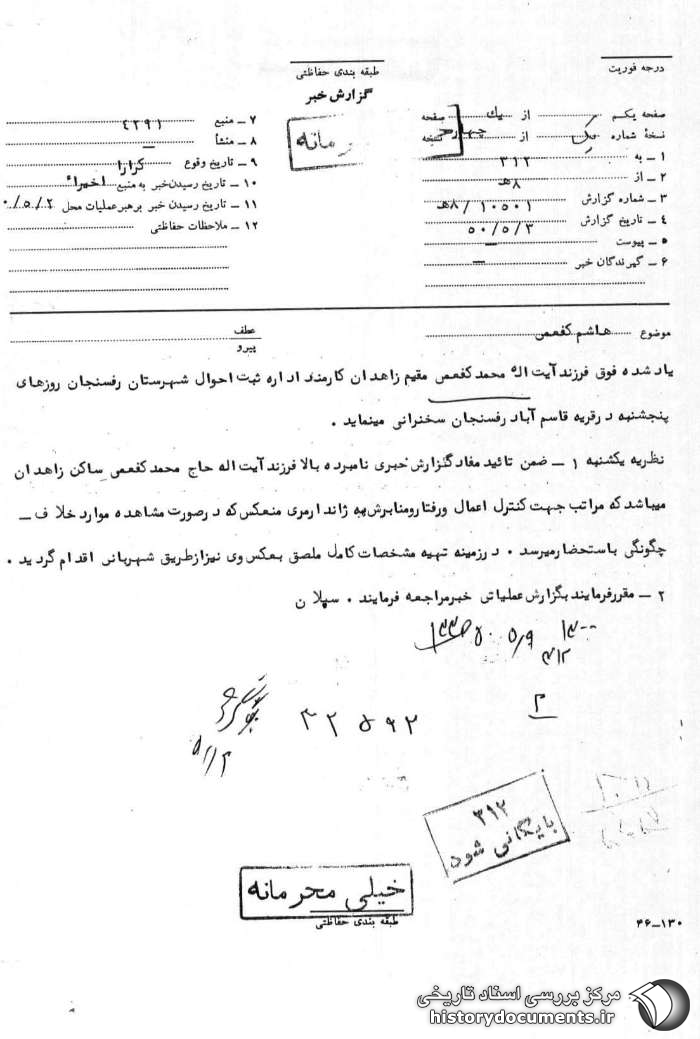 درجه فوریت
طبقه بندی حفاظتی
گزارش خبر
صفحه یکم از یك صفحه
نسخهٔ شماره یک از چهار نسخه
۱ ــ به ۳۱۲
۲ ــ از ۸هـ
۳ ــ شماره گزارش ۱۰۵۰۱ / ۸هـ
٤ ــ تاریخ گزارش ۵۰/۵/۳
۵ ــ پیوست ــ
۶ ــ گیرندگان خبر ــ
۷ ــ منبع ٤۲۹۱
۸ ــ منشأ ــ
۹ ــ تاریخ وقوع کرارا
۱۰ ــ تاریخ رسیدن خبر به منبع اخیرا
۱۱ ــ تاریخ رسیدن خبر برهبر عملیات محل ۰/۵/۲
۱۲ ــ ملاحظات حفاظتی
موضوع هاشم کفعمی
عطف
پیرو
یاد شده فوق فرزند آیت اله محمد کفعمی مقیم زاهدان کارمند اداره ثبت احوال شهرستان رفسنجان روزهای
پنجشنبه در قریه قاسم آباد رفسنجان سخنرانی مینماید .
نظریه یکشنبه ۱ ــ ضمن تائید مفاد گزارش خبری نامبرده بالا فرزند آیت اله حاج محمد کفعمی ساکن زاهدان
میباشد که مراتب جهت کنترل اعمال ورفتارومنابرش به ژاندارمری منعکس که درصورت مشاهده موارد خلاف ــ
چگونگی باستحضار میرسد . درزمینه تهیه مشخصات کامل ملصق بعکس وی نیز ازطریق شهربانی اقدام گردید .
۲ ــ مقررفرمایند بگزارش عملیاتی خبرمراجعه فرمایند . سپلان
۱۳۰۰
۳۱۲
۵۰ ۵/۹
۳۲۵۹۲
۳۱۲
بایگانی شود
خیلی محرمانه
طبقه بندی حفاظتی
۱۳۰ــ۴۶
مرکز بررسی اسناد تاریخی
historydocuments.ir